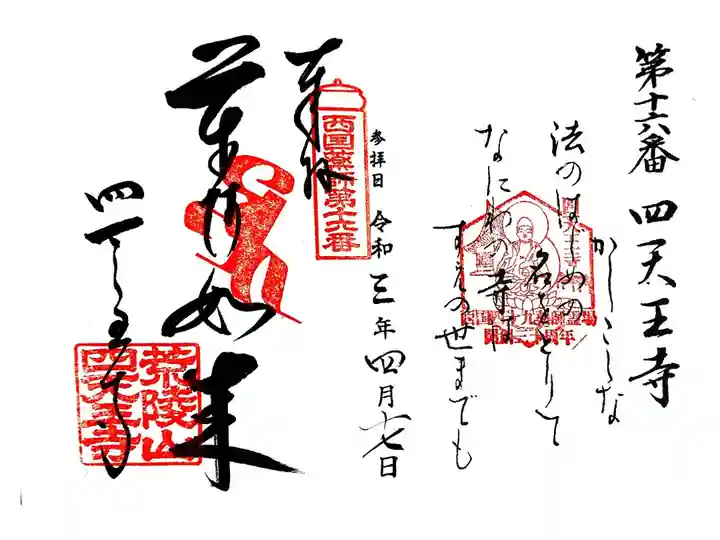 第十六番 四天王寺
かしこしな
法のはじめの
名をとりて
なにわの寺は
すえの世までも
参拝日 令和三年四月十七日
奉拝
西国薬師第十六番
薬師如来
四天王寺
荒陵山
四天王寺